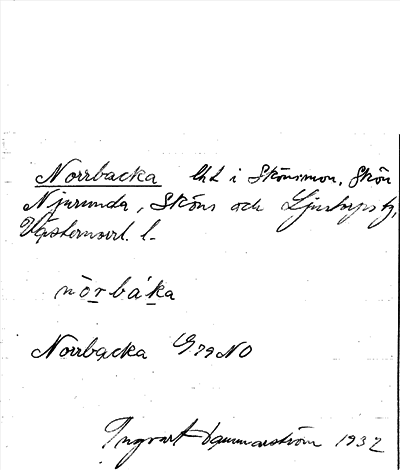 Norrbacka lht i Skönsmon, Skön
Njurunda, Sköns och Ljustorps tg,
Västernorrl. l.
nòrbáka
Norrbacka G.79 NO
Ingvart Hammarström 1932